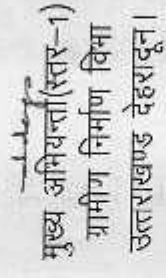 मुख्य अभियन्ता(स्तर-1)
ग्रामीण निर्माण विभा
उत्तराखण्ड देहरादून।